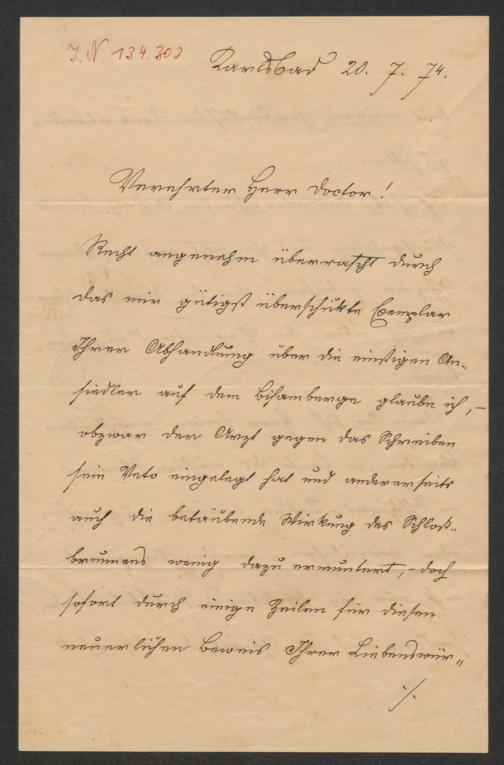 J. N. 134.303
Karlsbad 20. 7. 74.
Verehrter Herr Doctor!
Recht angenehm überrascht durch
das mir gütigst überschükte Exemplar
Ihrer Abhandlung über die einstigen An„
siedler auf dem Bisamberge glaube ich, –
obzwar der Arzt gegen das Schreiben
sein Veto eingelegt hat und andererseits
auch die betäubende Wirkung des Schloß„
brunnens wenig dazu ermuntert, – doch
sofort durch einige Zeilen für diesen
neuerlichen Beweis Ihrer Liebenswür„
./.